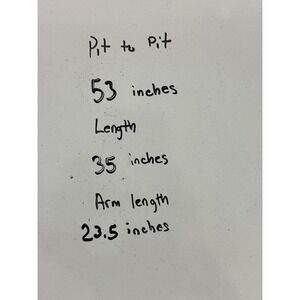 Pit to Pit
53 inches
Length
35 inches
Arm length
23.5 inches